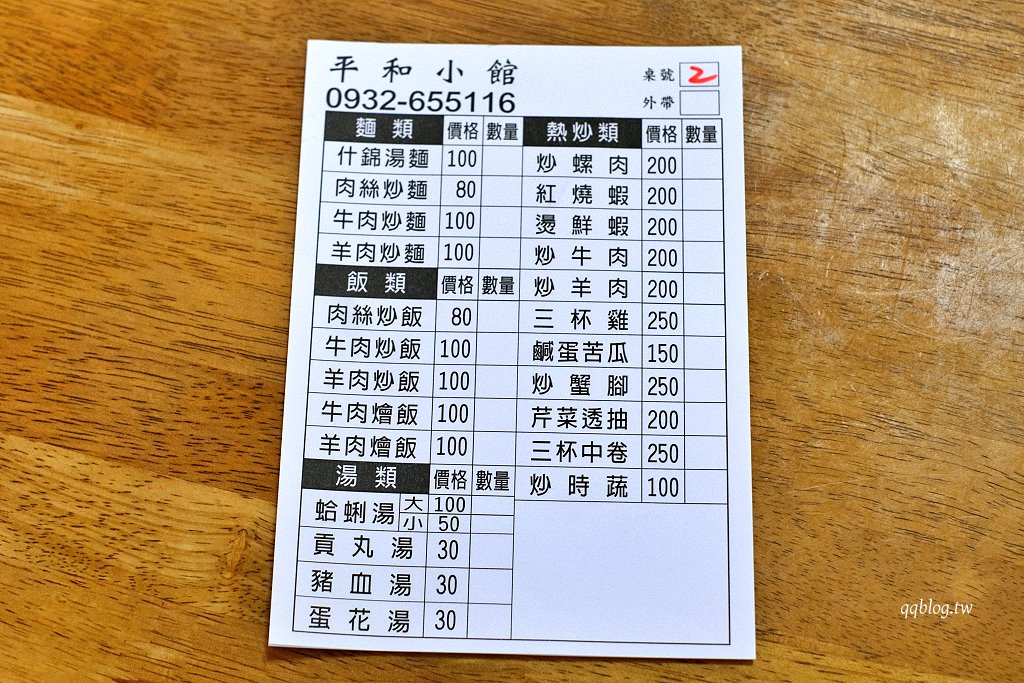 平和小館
0932-655116
桌號 2
外帶
麵類 價格 數量
什錦湯麵 100
肉絲炒麵 80
牛肉炒麵 100
羊肉炒麵 100
飯類 價格 數量
肉絲炒飯 80
牛肉炒飯 100
羊肉炒飯 100
牛肉燴飯 100
羊肉燴飯 100
湯類 價格 數量
蛤蜊湯 大 100
小 50
貢丸湯 30
豬血湯 30
蛋花湯 30
熱炒類 價格 數量
炒螺肉 200
紅燒蝦 200
燙鮮蝦 200
炒牛肉 200
炒羊肉 200
三杯雞 250
鹹蛋苦瓜 150
炒蟹腳 250
芹菜透抽 200
三杯中卷 250
炒時蔬 100
qqblog.tw